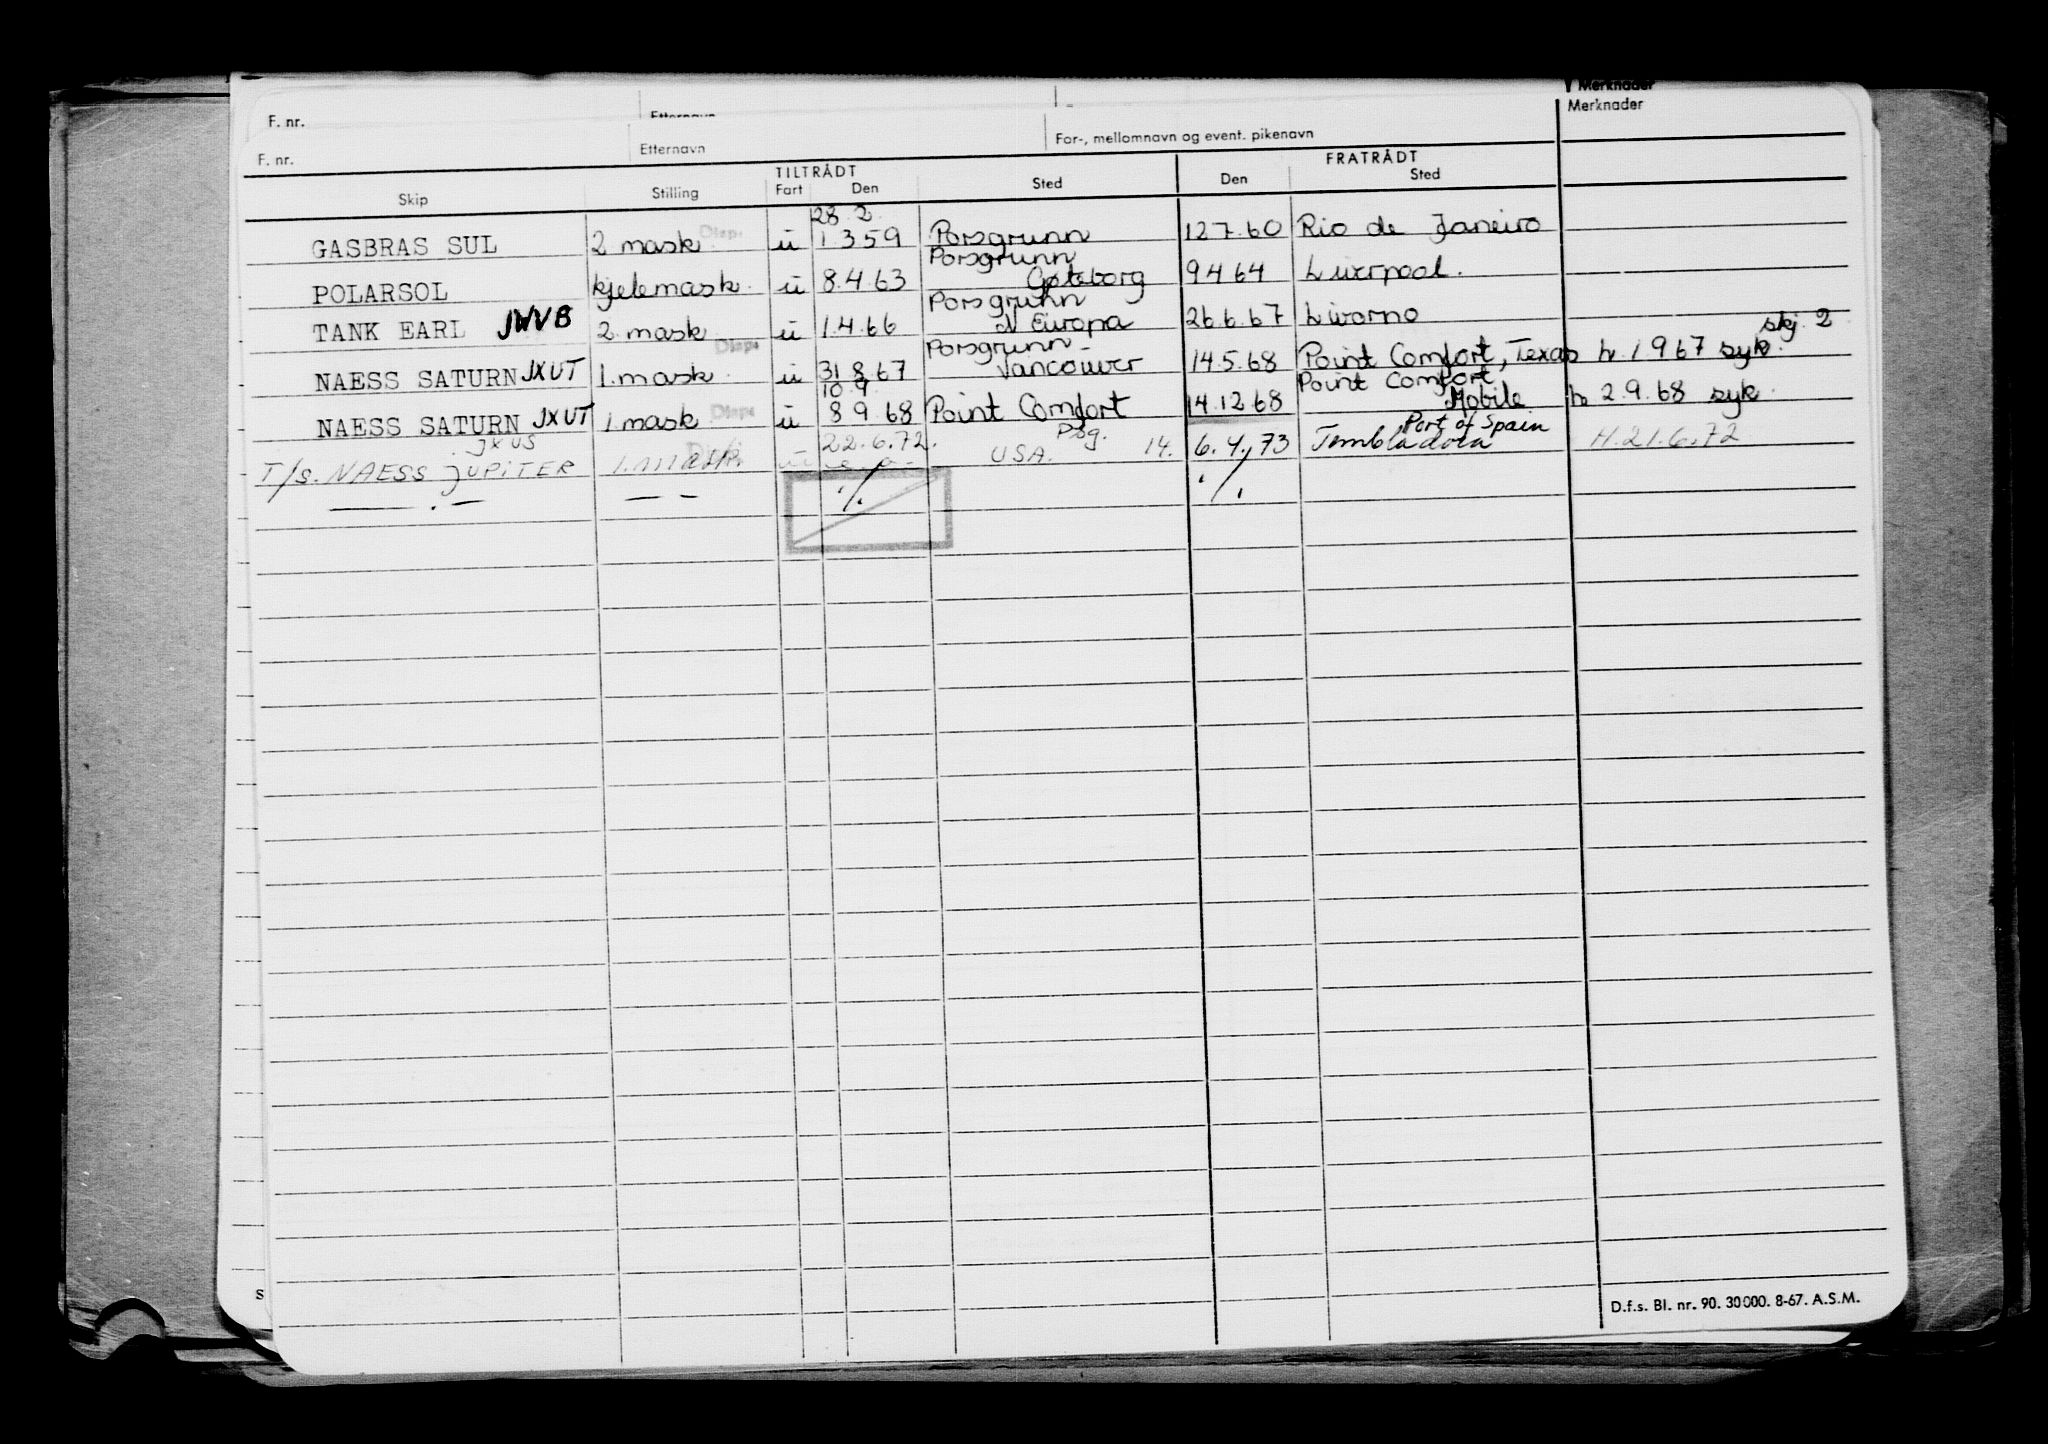 Merknader
F. nr.
Etternavn
F. nr. Etternavn For-, mellomnavn og event. pikenavn Merknader
TILTRÅDT FRATRÅDT
Skip Stilling Fart Den Sted Den Sted
28.2
GASBRAS SUL 2 mask Disp. ü 1.3 59 Porsgrunn 12 7.60 Rio de Janeiro
Porsgrunn
POLARSOL kjelemask. ü 8.4.63 Gøteborg 9 4 64 Liverpool.
Porsgrunn
TANK EARL JWVB 2. mask ü 1.4.66 d Europa 26.6.67 Livorno
Porsgrunn skj. 2
NAESS SATURN JXUT 1. mask Disp. ü 31 8.67 Vancouver 14.5.68 Point Comfort, Texas h. 1 9 67 syk.
10.9 Point Comfort
NAESS SATURN JXUT 1. mask Disp. ü 8 9.68 Point Comfort 14.12.68 Mobile h 2.9.68 syk.
JXUS 22.6.72. Psg. Port of Spain
T/S. NAESS JUPITER 1. mask. USA. 14. 6.4.73 Tembladora H.21.6.72
— . — — — ./. ./.
S
D.f.s. Bl. nr. 90. 30000. 8-67. A.S.M.